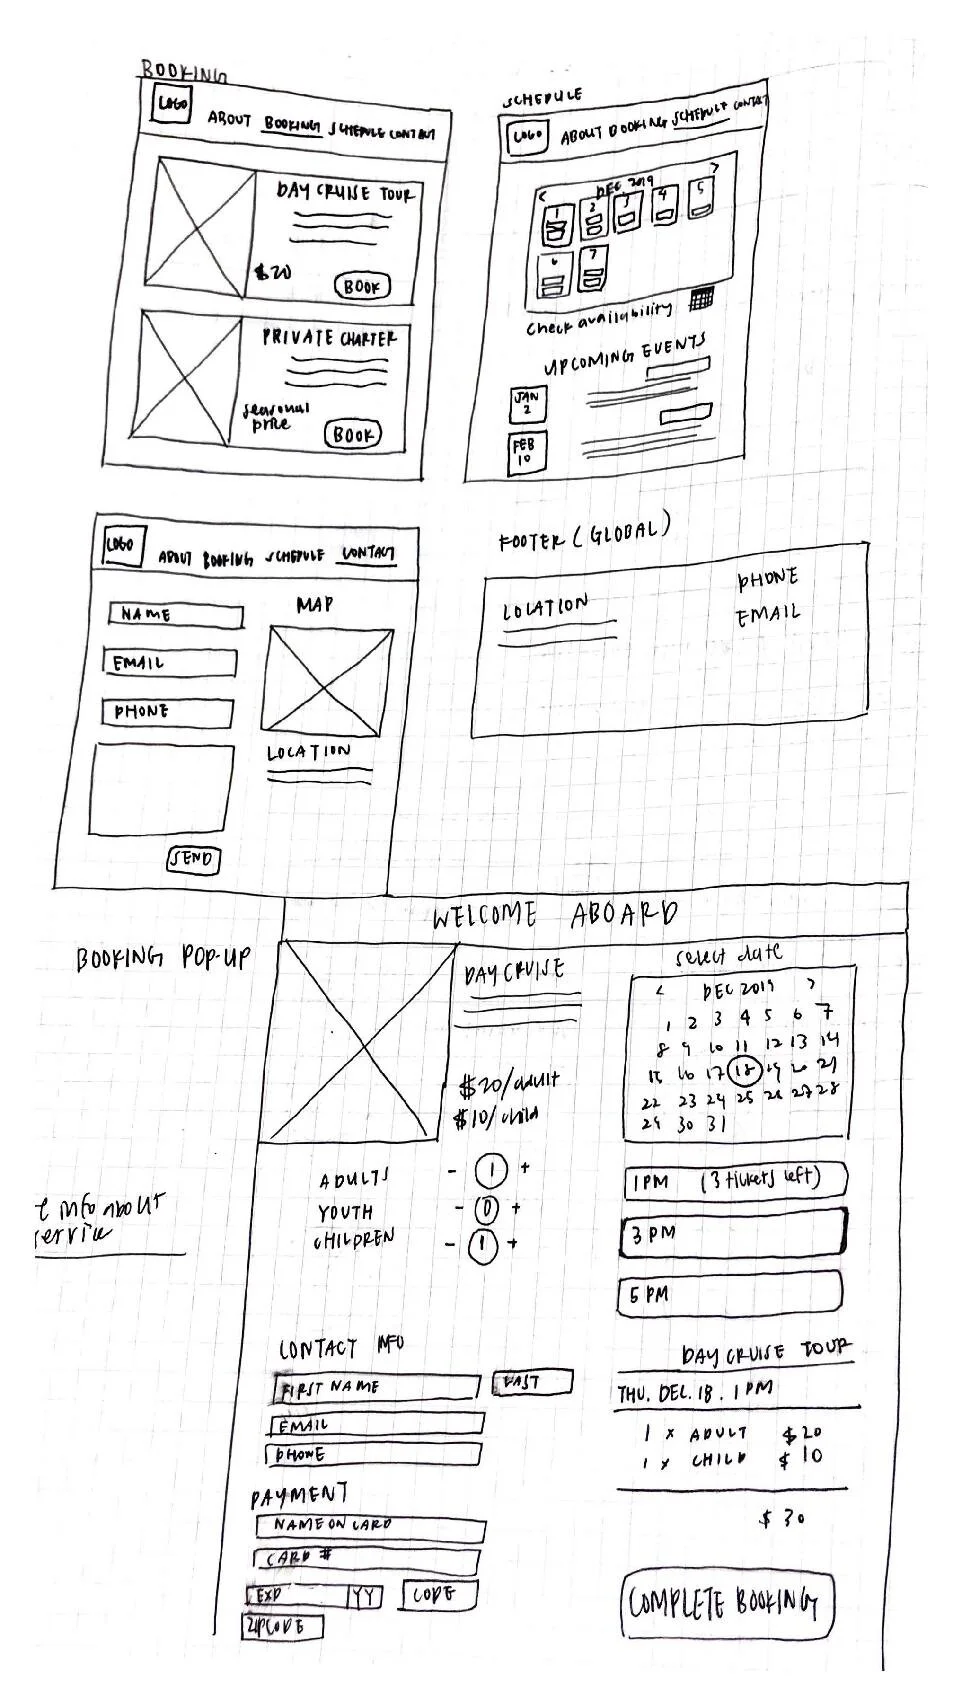 BOOKING
LOGO
ABOUT BOOKING SCHEDULE CONTACT
DAY CRUISE TOUR
$20
BOOK
PRIVATE CHARTER
seasonal
price
BOOK
SCHEDULE
LOGO
ABOUT BOOKING SCHEDULE CONTACT
< DEC. 2019 >
1 2 3 4 5
6 7
check availability
UPCOMING EVENTS
JAN
2
FEB
10
LOGO
ABOUT BOOKING SCHEDULE CONTACT
NAME
EMAIL
PHONE
SEND
MAP
LOCATION
FOOTER (GLOBAL)
LOCATION
PHONE
EMAIL
BOOKING POP-UP
info about
WELCOME ABOARD
DAY CRUISE
$20/adult
$10/child
select date
< DEC 2019 >
1 2 3 4 5 6 7
8 9 10 11 12 13 14
15 16 17 18 19 20 21
22 23 24 25 26 27 28
29 30 31
ADULTS - 1 +
YOUTH - 0 +
CHILDREN - 1 +
1 PM (3 tickets left)
3 PM
5 PM
CONTACT INFO
FIRST NAME
LAST
EMAIL
PHONE
PAYMENT
NAME ON CARD
CARD #
EXP YY CODE
ZIPCODE
DAY CRUISE TOUR
THU. DEC. 18. 1 PM
1 x ADULT $20
1 x CHILD $10
$30
COMPLETE BOOKING